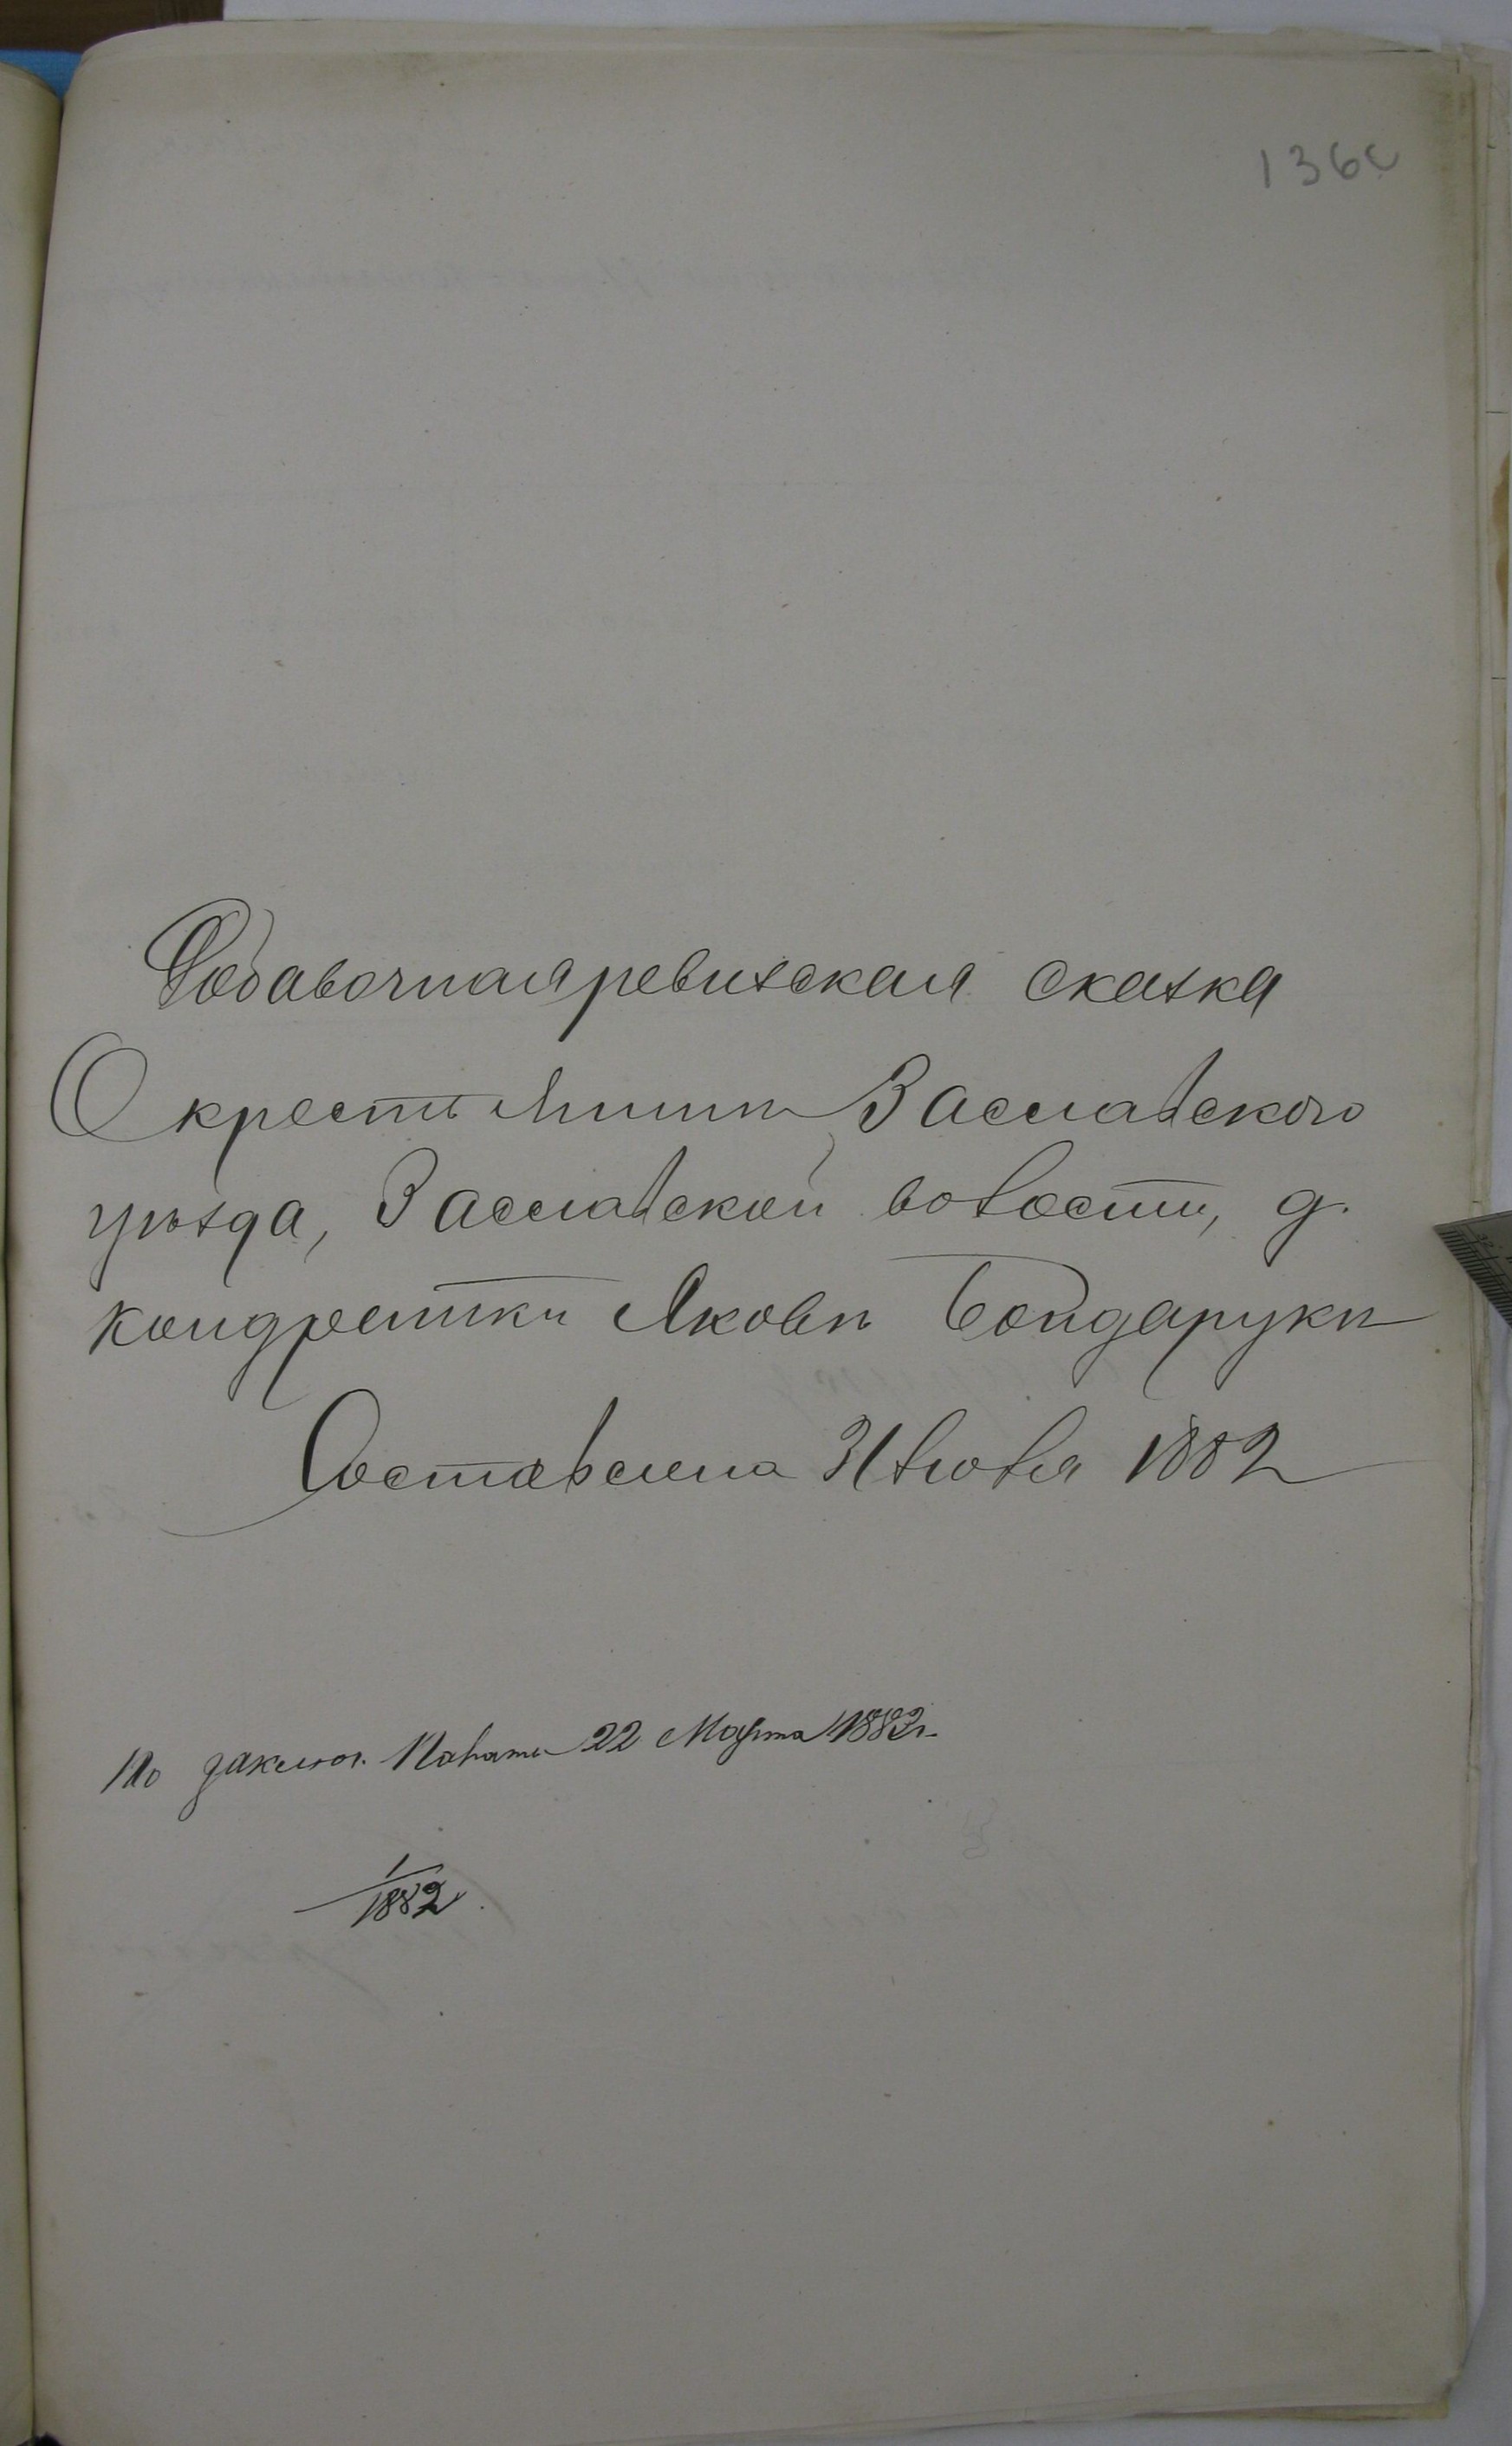 136
Добавочная ревизская сказка
О крестьянинѣ Заславскаго
уѣзда, Заславской волости, д.
Кондратки Яковѣ Бондарукѣ
Составлена 31 Июля 1882
По заключ. Палаты 22 Марта 1882 г.
1/1882